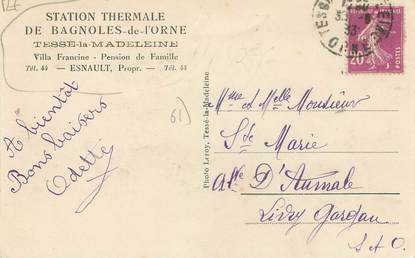 STATION THERMALE
DE BAGNOLES-de-l'ORNE
TESSÉ-la-MADELEINE
Villa Francine - Pension de Famille
Tél. 44 — ESNAULT, Propr. — Tél. 44
A bientôt
Bons baisers
Odette
61)
Photo Leroy, Tessé-la-Madeleine
TESSÉ
ORNE
POSTES
20
Mme et Melle Monsieur
Ste Marie
Alle D'Aumale
Livry Gargan
S et O.